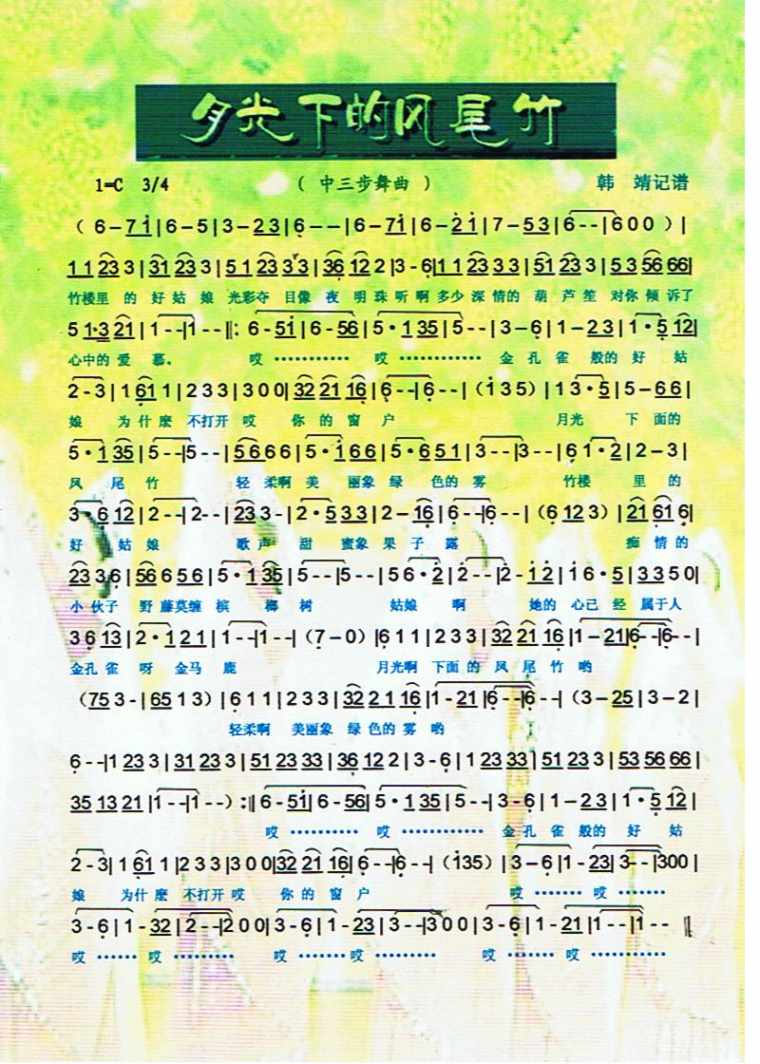 月光下的风尾竹
1=C 3/4 （ 中三步舞曲 ） 韩 靖记谱
（ 6–7i|6–5|3–23|6––|6–7i|6–2i|7–53|6--|600 ）|
11233|312 33|512333|36122|3-6|112333|51233|535666|
竹楼里 的 好 姑 娘 光彩夺 目像 夜 明 珠 听 啊 多少 深 情的 葫 芦 笙 对你 倾 诉了
51·321|1--|1--‖: 6-5i|6-56|5·135|5--|3–6|1–23|1·512|
心中的 爱 慕。 哎 ………… 哎 ………… 金 孔 雀 般的 好 姑
2-3|1611|233|300|322116|6--|6--|（i35）|13·5|5–66|
娘 为什 麽 不打开 哎 你 的 窗 户 月光 下 面的
5·135|5--|5--|5666|5·i66|5·651|3--|3--|61·2|2–3|
风 尾 竹 轻 柔啊 美 丽象 绿 色的 雾 竹楼 里 的
3·612|2--|2--|233-|2·533|2–16|6--|6--|（6123）|21616|
好 姑 娘 歌声 甜 蜜象 果 子 露 痴 情的
2336|56656|5·i35|5--|5--|56·2|2--|2-i2|i6·5|3350|
小 伙子 野 藤莫缠 槟 榔 树 姑娘 啊 她的 心已 经 属于人
3613|2·121|1--|1--|（7–0）|611|233|322116|1–21|6--|6--|
金孔 雀 呀 金马 鹿 月光啊 下面 的 风 尾 竹 哟
（753-|6513）|611|233|322116|1-21|6--|6--|（3–25|3–2|
轻柔啊 美丽象 绿 色的 雾 哟
6--|1233|31233|512333|36122|3-6|12333|51233|535666|
351321|1--|1--）:‖6-5i|6-56|5·135|5--|3-6|1–23|1·512|
哎 ………… 哎 ………… 金 孔 雀 般的 好 姑
2-3|1611|233|300|322116|6--|6--|（i35）|3–6|1-23|3--|300|
娘 为什 麽 不打开 哎 你 的 窗 户 哎 …… 哎 ……
3-6|1-32|2--|200|3-6|1-23|3--|300|3-6|1-21|1--|1--‖
哎 …… 哎 ……… 哎 …… 哎 ……… 哎 …… 哎 …………